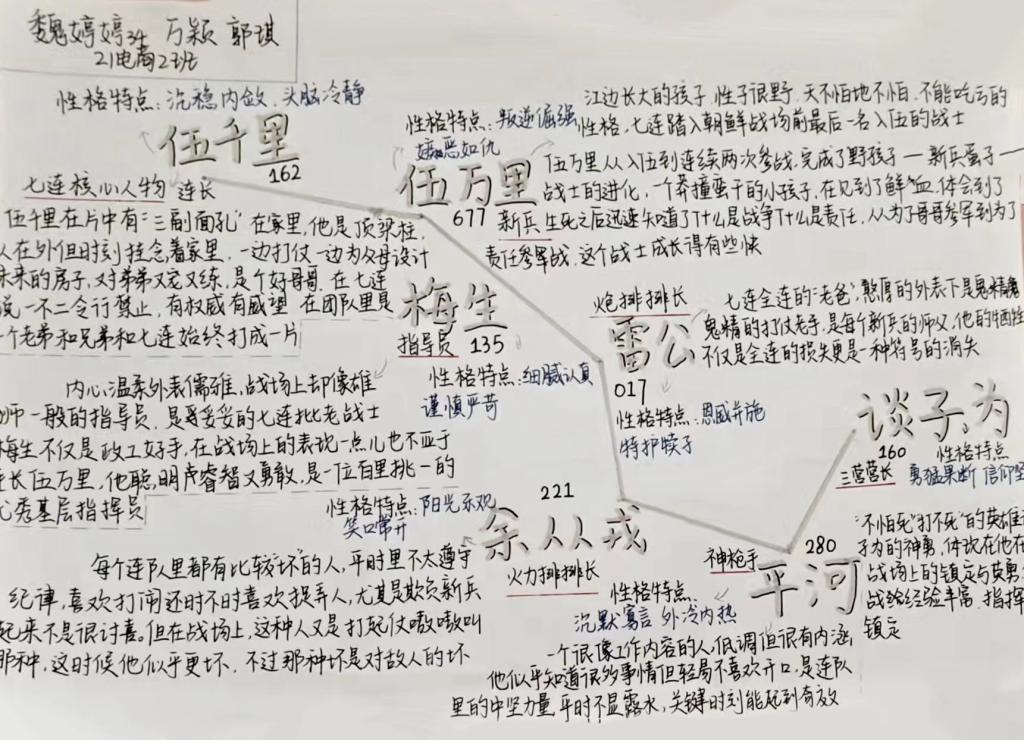 魏婷婷34 万颖 郭琪
21电商2班
性格特点：沉稳内敛、头脑冷静
伍千里
162
七连核心人物 连长
伍千里在片中有“三副面孔”在家里，他是顶梁柱，
人在外但时刻挂念着家里，一边打仗一边为父母设计
未来的房子，对弟弟又宠又练，是个好哥哥，在七连
说一不二令行禁止，有权威有威望 在团队里是
一个老弟和兄弟和七连始终打成一片
性格特点：叛逆倔强
嫉恶如仇
伍万里
677
新兵
江边长大的孩子，性子很野，天不怕地不怕，不能吃亏的
性格，七连踏入朝鲜战场前最后一名入伍的战士
伍万里从入伍到连续两次参战，完成了野孩子—新兵蛋子—
战士的进化，一个莽撞蛮干的小孩子，在见到了鲜血，体会到了
生死之后迅速知道了什么是战争了什么是责任，从为了哥哥参军到为了
责任参军战，这个战士成长得有些快
梅生
指导员 135
性格特点：细腻认真
谨慎严苛
内心温柔外表儒雅，战场上却像雄
狮一般的指导员，是妥妥的七连批老战士
梅生不仅是政工好手，在战场上的表现一点儿也不亚于
连长伍万里，他聪明卢睿智又勇敢，是一位百里挑一的
优秀基层指挥员
炮排排长
雷公
017
性格特点：恩威并施
特护犊子
七连全连的“老爸”憨厚的外表下是鬼精魂
鬼精的打仗老手，是每个新兵的师父，他的牺牲
不仅是全连的损失更是一种符号的消失
谈子为
160 性格特点
三营营长 勇猛果断 信仰坚
“不怕死”打不死”的英雄
子为的神勇，体现在他在
战场上的镇定与英勇
战经验丰富，指挥
镇定
性格特点：阳光乐观
笑口常开
221
余从戎
火力排排长
每个连队里都有比较“坏”的人，平时里不太遵守
纪律，喜欢打闹还时不时喜欢捉弄人，尤其是欺负新兵
起来不是很讨喜，但在战场上，这种人又是打起仗嗷嗷叫
那种，这时候他似乎更坏，不过那种坏是对敌人的坏
神枪手
280
平河
性格特点：
沉默寡言 外冷内热
一个很像工作内容的人，低调但很有内涵
他似乎知道很多事情但轻易不喜欢开口，是连队
里的中坚力量，平时不显露水，关键时刻能起到奇效